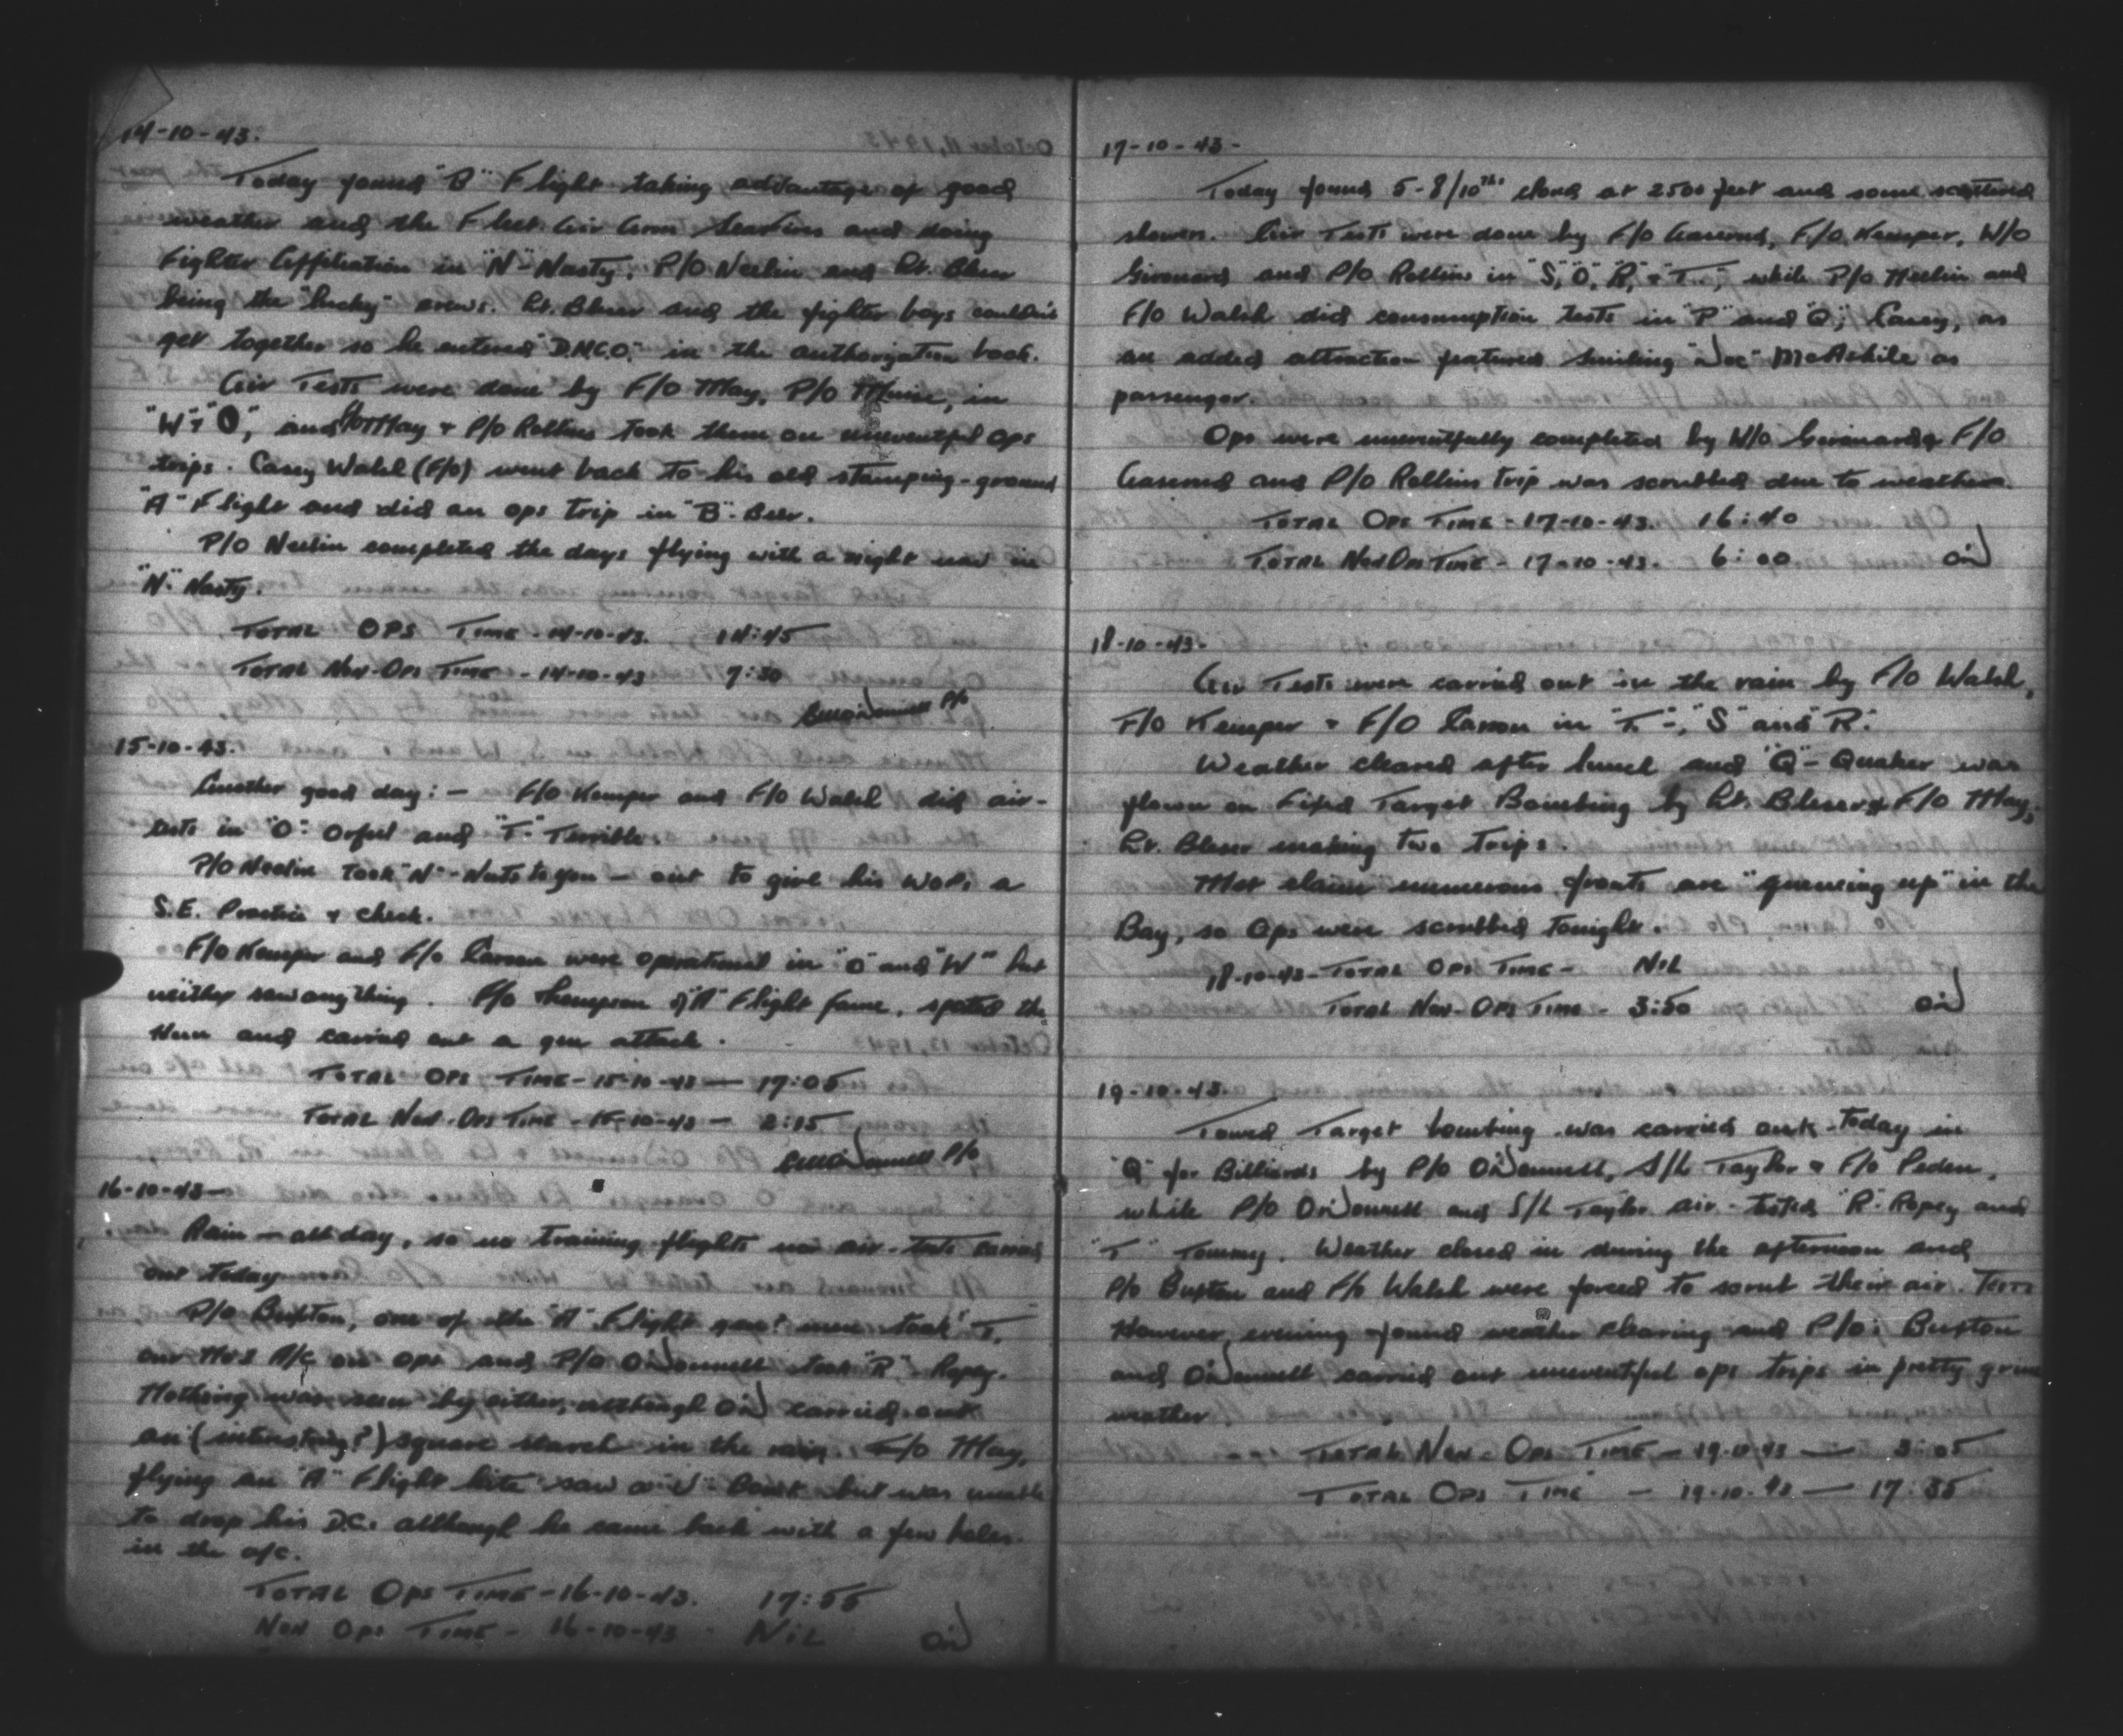 14-10-43.
Today found "B" Flight taking advantage of good
weather and the Fleet Air Arm Seafires and doing
Fighter Affiliation in "N"-Nasty, P/O Neelin and Lt. Bleser
being the "lucky" crews. Lt. Bleser and the fighter boys couldn't
get together so he entered "D.N.C.O." in the authorization book.
Air Tests were done by F/O May, P/O Munie, in
"W" + "O", and F/O May + P/O Rollins took them on uneventful ops
trips. Casey Walsh (F/O) went back to his old stamping-ground
"A" Flight and did an ops trip in "B"-Beer.
P/O Neelin completed the days flying with a night nav in
"N"-Nasty.
TOTAL OPS TIME - 14-10-43. 14:45
TOTAL NON-OPS TIME - 14-10-43 7:30
O'Donnell P/O
15-10-43.
Another good day: - F/O Kemper and F/O Walsh did air-
tests in "O"- Orful and "T"- Terrible.
P/O Neelin took "N"-Nuts to you - out to give his WOPs a
S.E. Practice + check.
F/O Kemper and F/O Carson were operational in "O" and "W" but
neither saw anything. F/O Thompson of "A" Flight fame, spotted the
Hun and carried out a gun attack.
TOTAL OPS TIME - 15-10-43 — 17:05
TOTAL NON-OPS TIME - 15-10-43 — 2:15
O'Donnell P/O
16-10-43 -
Rain - all day, so no training flights nor air-tests carried
out today
P/O Buxton, one of the "A" Flight gen men took "T",
our A/C on ops and P/O O'Donnell took "R"- Ropey.
Nothing was seen by either, although O'D carried out
an (interesting?) square search in the rain. F/O May,
flying an "A" Flight kite saw a "U"-Boat but was unable
to drop his D.C.s although he came back with a few holes
in the a/c.
TOTAL OPS TIME - 16-10-43. 17:55
NON OPS TIME - 16-10-43 - NIL O'D
17-10-43 -
Today found 5-8/10ths cloud at 2500 feet and some scattered
showers. Air Tests were done by F/O F/O Kemper, W/O
Girouard and P/O Rollins in "S", "O", "R", + "T", while P/O Neelin and
F/O Walsh did consumption tests in "P" and "Q"; Casey, as
an added attraction featured Smiling "Joe" as
passenger.
Ops were uneventfully completed by W/O Girouard & F/O
and P/O Rollins trip was scrubbed due to weather.
TOTAL OPS TIME - 17-10-43. 16:40
TOTAL NON OPS TIME - 17-10-43. 6:00 O'D
18-10-43 -
Air Tests were carried out in the rain by F/O Walsh,
F/O Kemper + F/O Carson in "T"-, "S" and "R".
Weather cleared after lunch and "Q"- Quaker was
flown on Fixed Target Bombing by Lt. Bleser & F/O May,
Lt. Bleser making two trips.
Met claim numerous fronts are "queueing up" in the
Bay, so Ops were scrubbed tonight.
18-10-43 - TOTAL OPS TIME - NIL
TOTAL NON-OPS TIME - 3:50 O'D
19-10-43.
Towed Target bombing was carried out today in
"Q" for Billiards by P/O O'Donnell, S/L Taylor & F/O Peden,
while P/O O'Donnell and S/L Taylor air-tested "R"-Ropey and
"T" Tommy. Weather closed in during the afternoon and
P/O Buxton and F/O Walsh were forced to scrub their air-Tests
However evening found weather clearing and P/O's Buxton
and O'Donnell carried out uneventful ops trips in pretty grim
weather
TOTAL NON-OPS TIME - 19-10-43 — 3:05
TOTAL OPS TIME - 19-10-43 — 17:35